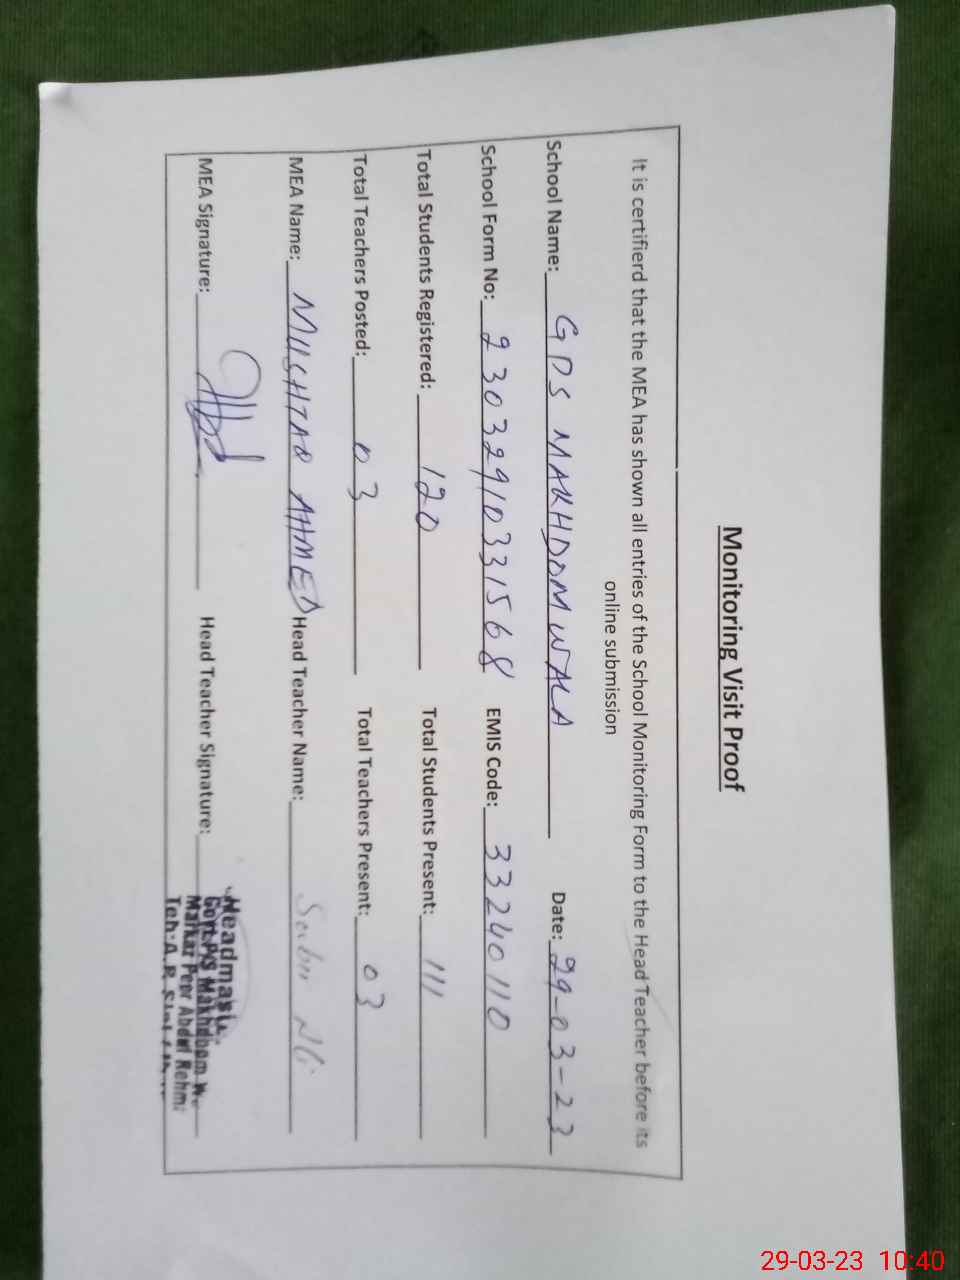 Monitoring Visit Proof
It is certifierd that the MEA has shown all entries of the School Monitoring Form to the Head Teacher before its
online submission
School Name: GPS MAKHDOOM WALA Date: 29-03-23
School Form No: 23032910331568 EMIS Code: 33240110
Total Students Registered: 120 Total Students Present: 111
Total Teachers Posted: 03 Total Teachers Present: 03
MEA Name: MUSHTAQ AHMED Head Teacher Name:
MEA Signature: Head Teacher Signature:
Headmast
Govt P/S Makhdoom W
Markaz Peer Abdul Rehm
Teh: A.P.
29-03-23 10:40